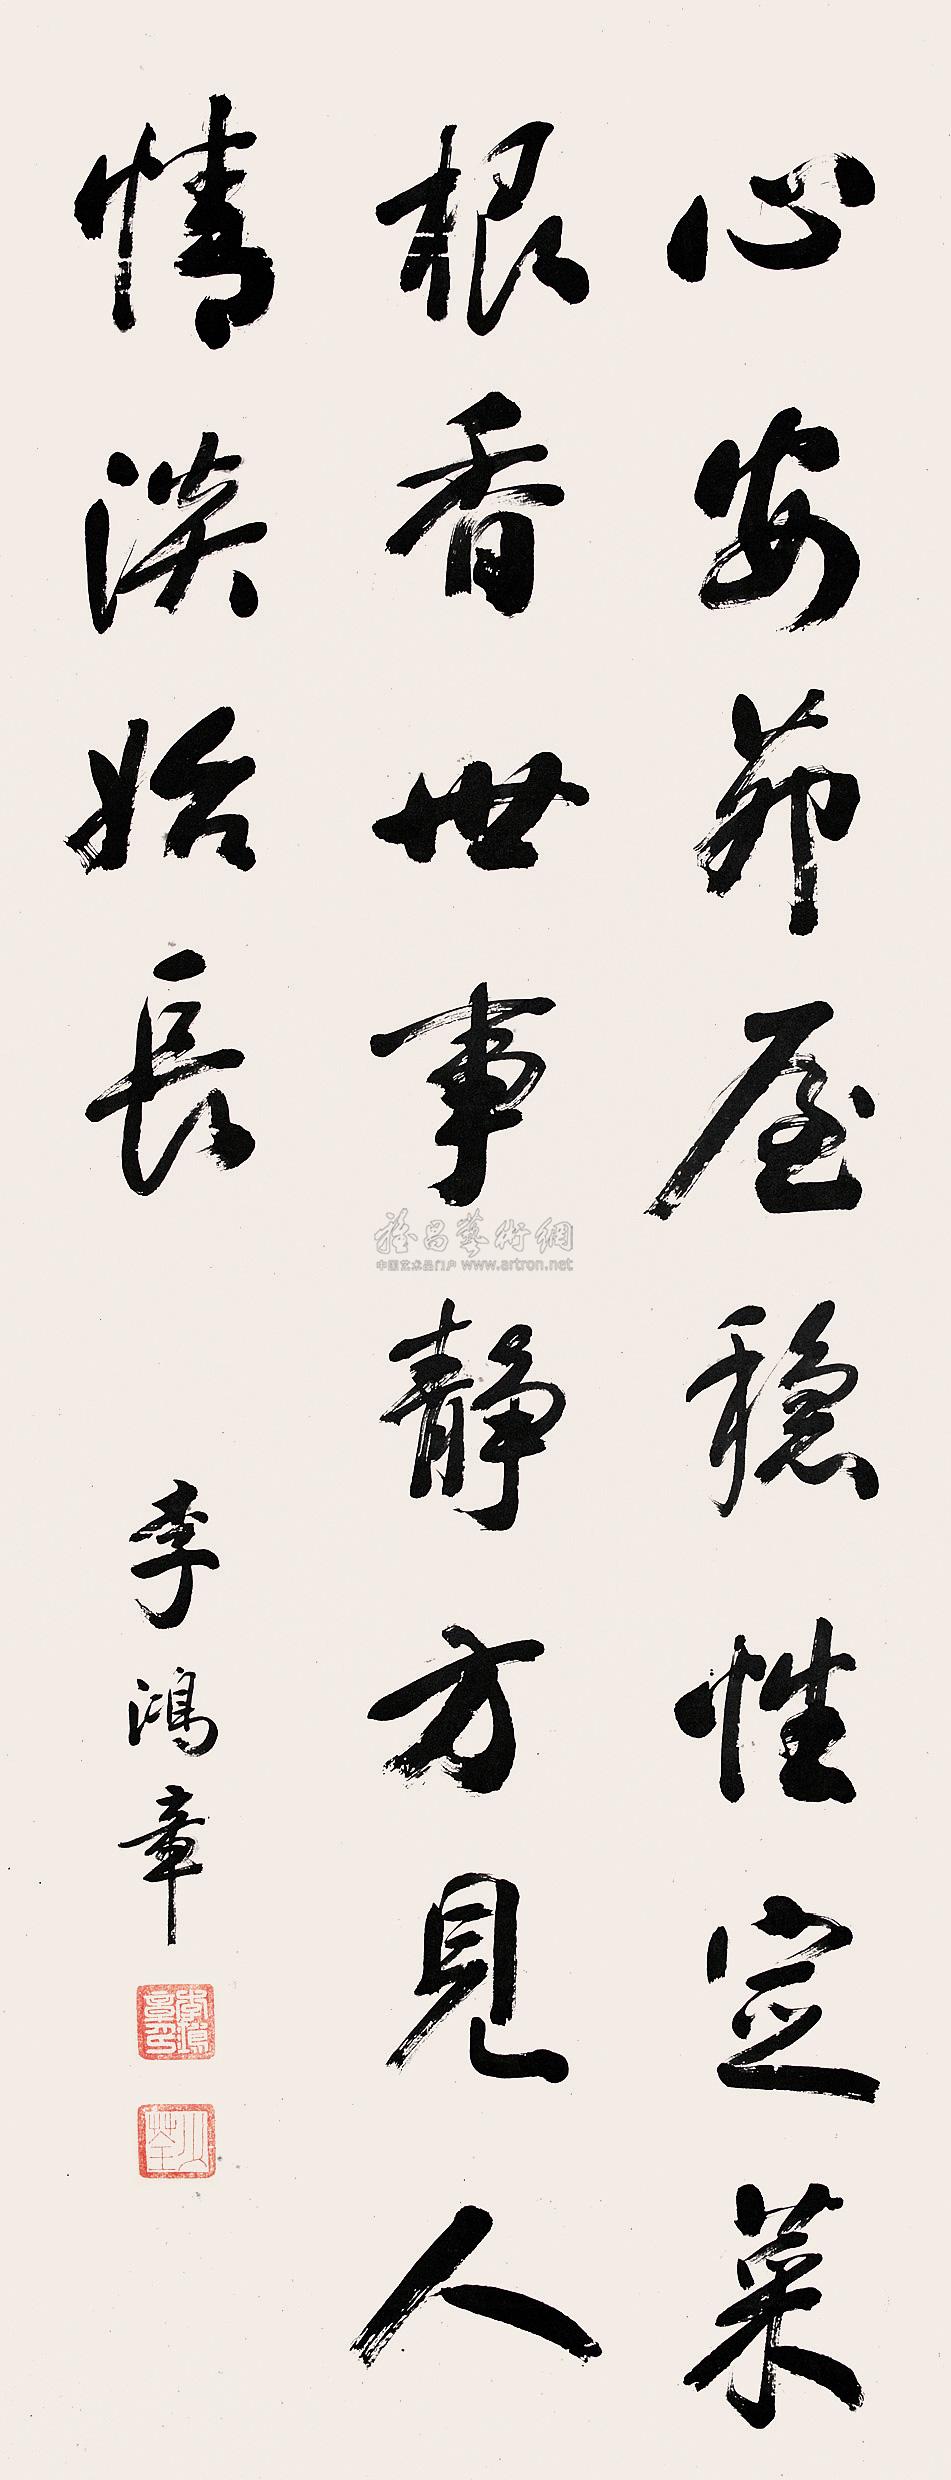 心安茆屋穩性定菜
根香世事靜方見人
情淡始長
李鴻章
雅昌藝術網
中国艺术品门户 www.artron.net